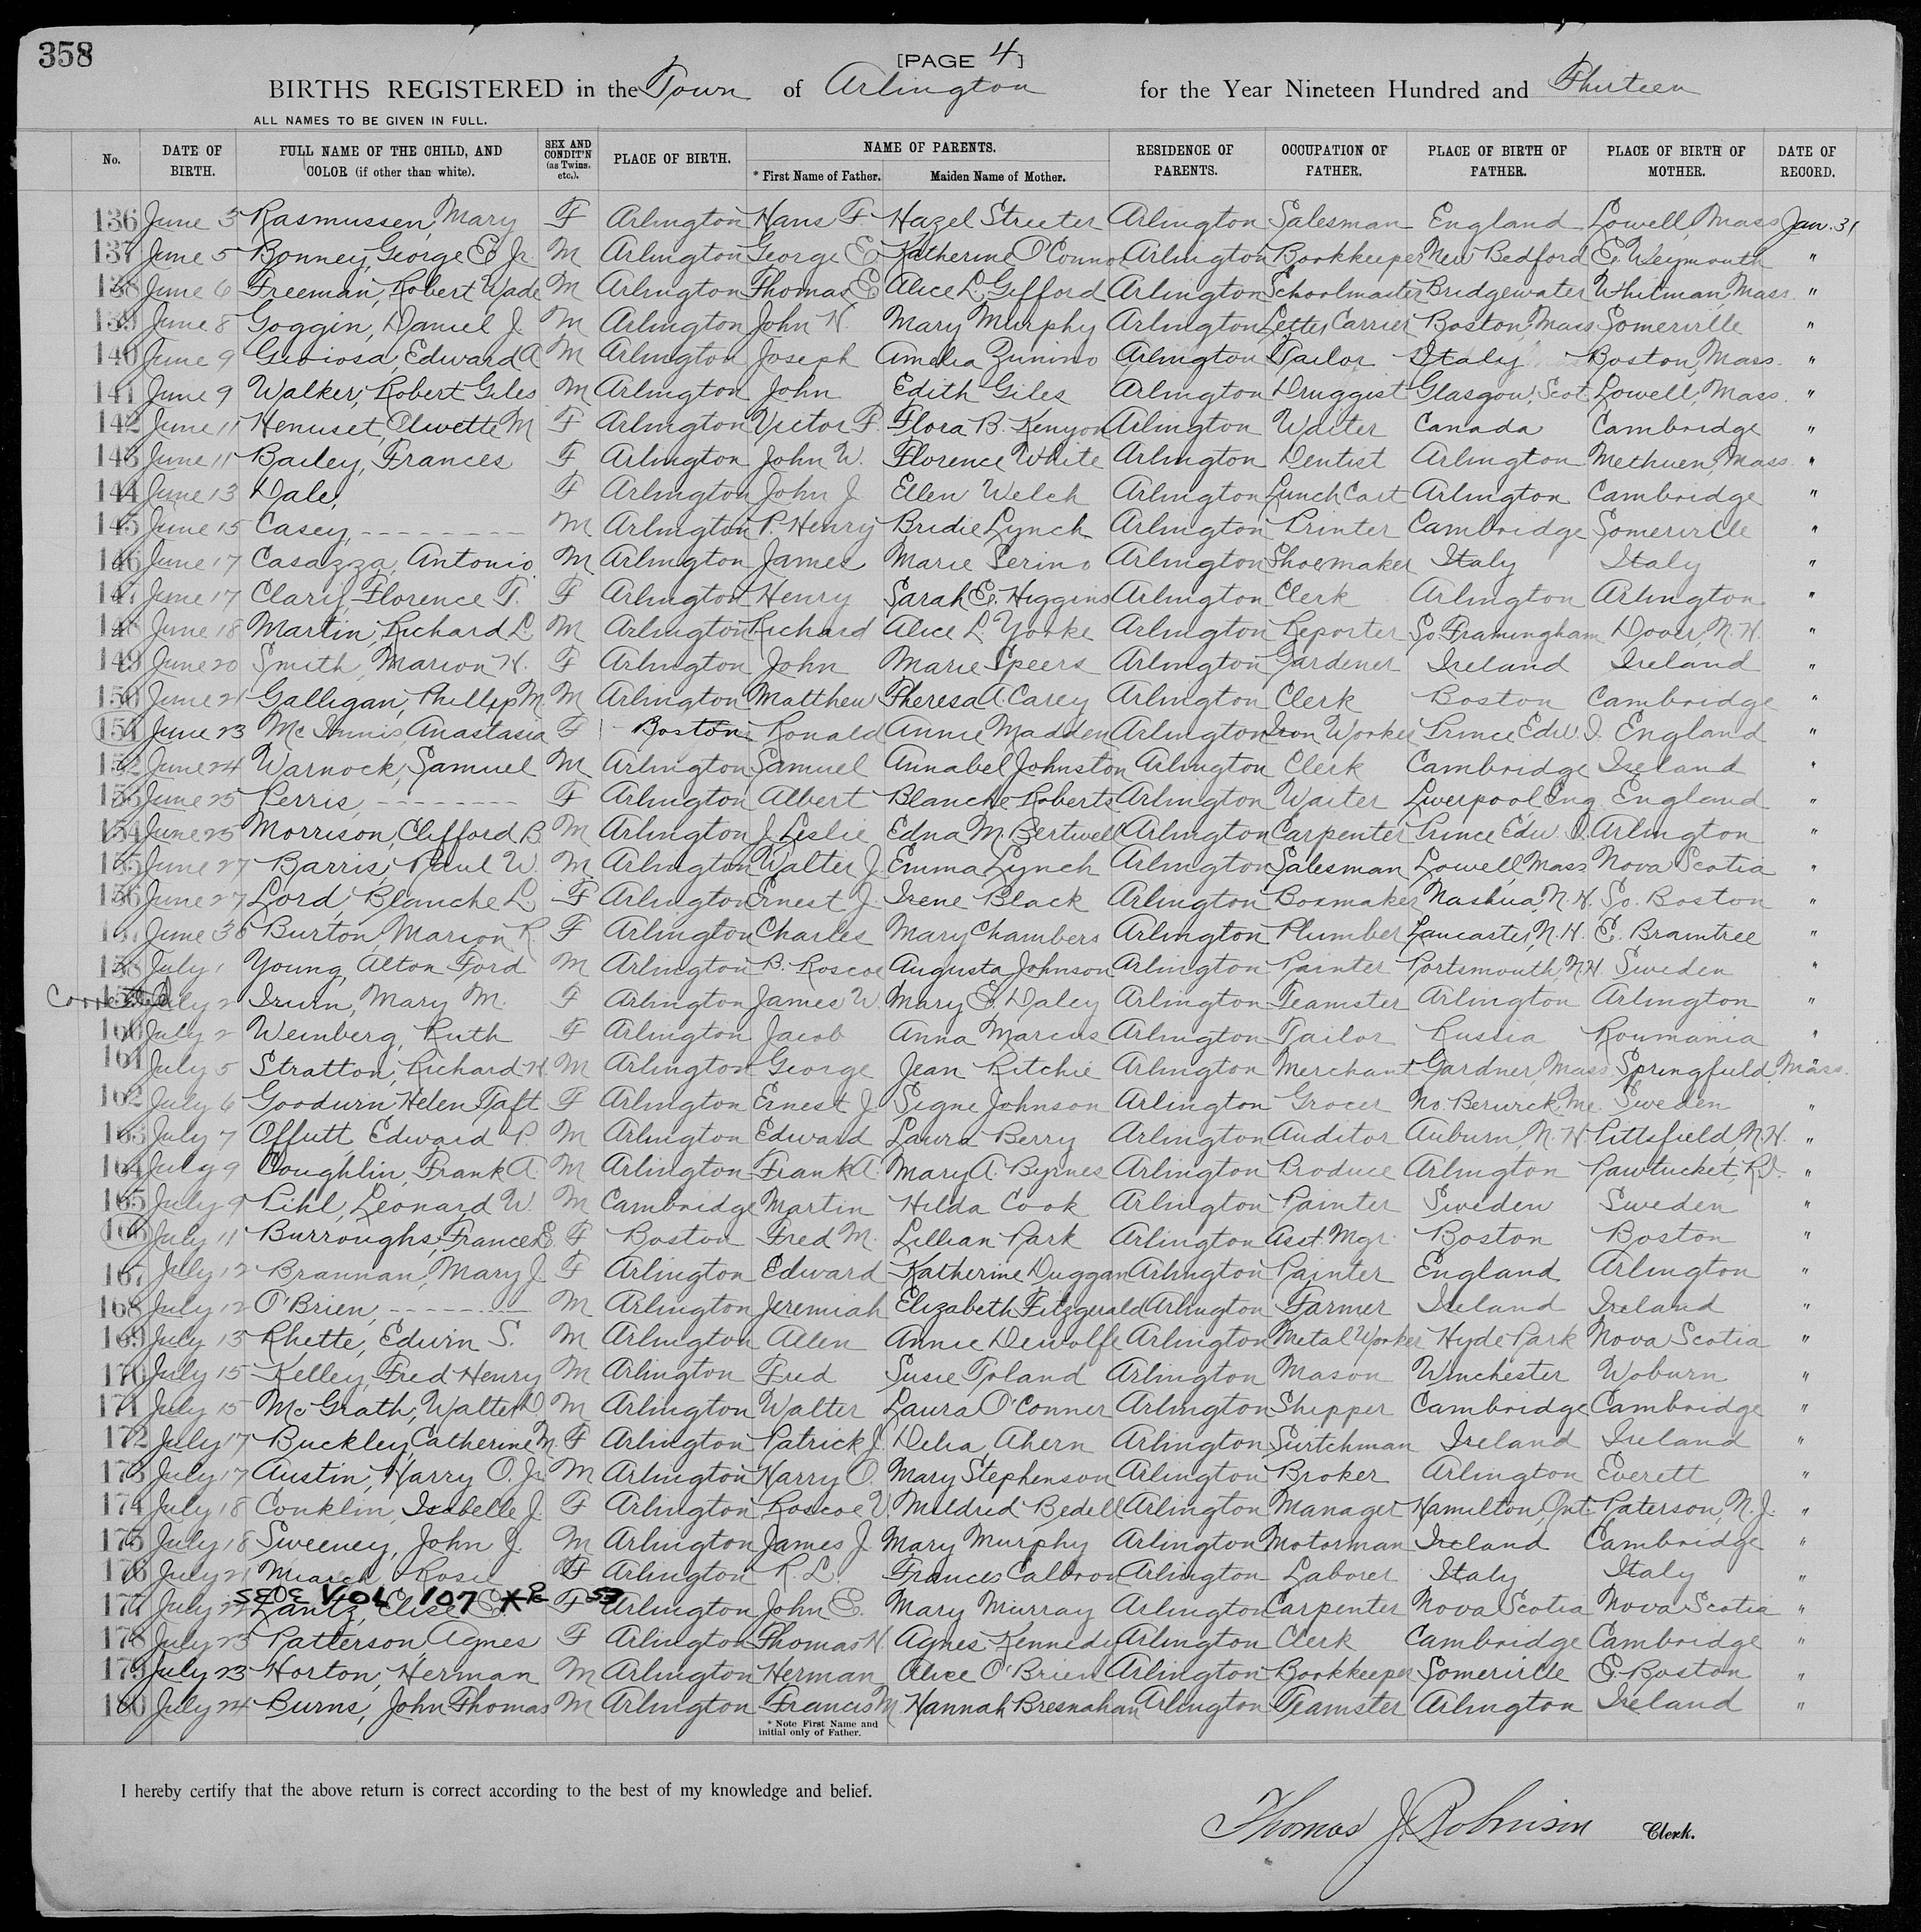 358
[PAGE 4]
BIRTHS REGISTERED in the Town of Arlington for the Year Nineteen Hundred and Thirteen
ALL NAMES TO BE GIVEN IN FULL.
No. DATE OF BIRTH. FULL NAME OF THE CHILD, AND COLOR (if other than white). SEX AND CONDIT'N (as Twins, etc.). PLACE OF BIRTH. NAME OF PARENTS. * First Name of Father. Maiden Name of Mother. RESIDENCE OF PARENTS. OCCUPATION OF FATHER. PLACE OF BIRTH OF FATHER. PLACE OF BIRTH OF MOTHER. DATE OF RECORD.
136 June 5 Rasmussen, Mary F Arlington Hans F. Hazel Streeter Arlington Salesman England Lowell, Mass Jan. 31
137 June 5 Bonney, George E. Jr. M Arlington George E. Katherine O'Connor Arlington Bookkeeper New Bedford E. Weymouth "
138 June 6 Freeman, Robert Wade M Arlington Thomas E. Alice L. Gifford Arlington Schoolmaster Bridgewater Whitman, Mass. "
139 June 8 Goggin, Daniel J. M Arlington John H. Mary Murphy Arlington Letter Carrier Boston, Mass Somerville "
140 June 9 Gioiosa, Edward A. M Arlington Joseph Amelia Zunino Arlington Tailor Italy Boston, Mass. "
141 June 9 Walker, Robert Giles M Arlington John Edith Giles Arlington Druggist Glasgow, Scot. Lowell, Mass. "
142 June 11 Henuset, Olivette M F Arlington Victor F. Flora B. Kenyon Arlington Waiter Canada Cambridge "
143 June 11 Bailey, Frances F Arlington John W. Florence White Arlington Dentist Arlington Methuen, Mass. "
144 June 13 Dale, F Arlington John J. Ellen Welch Arlington Lunch Cart Arlington Cambridge "
145 June 15 Casey, --------- M Arlington P. Henry Bridie Lynch Arlington Printer Cambridge Somerville "
146 June 17 Casazza, Antonio M Arlington James Marie Serino Arlington Shoemaker Italy Italy "
147 June 17 Clary, Florence T. F Arlington Henry Sarah E. Higgins Arlington Clerk Arlington Arlington "
148 June 18 Martin, Richard L. M Arlington Richard Alice L. Yorke Arlington Reporter So. Framingham Dover, N.H. "
149 June 20 Smith, Marion H. F Arlington John Marie Speers Arlington Gardener Ireland Ireland "
150 June 21 Galligan, Phillip M. M Arlington Matthew Theresa A. Carey Arlington Clerk Boston Cambridge "
151 June 23 McInnis, Anastasia F Boston Ronald Annie Madden Arlington Iron Worker Prince Edw. I. England "
152 June 24 Warnock, Samuel M Arlington Samuel Annabel Johnston Arlington Clerk Cambridge Ireland "
153 June 25 Perris, -------- F Arlington Albert Blanche Roberts Arlington Waiter Liverpool, Eng. England "
154 June 25 Morrison, Clifford B. M Arlington J. Leslie Edna M. Bertwell Arlington Carpenter Prince Edw. I. Arlington "
155 June 27 Barris, Paul W. M Arlington Walter J. Emma Lynch Arlington Salesman Lowell, Mass Nova Scotia "
156 June 27 Lord, Blanche L. F Arlington Ernest J. Irene Black Arlington Boxmaker Nashua, N.H. So. Boston "
157 June 30 Burton, Marion R. F Arlington Charles Mary Chambers Arlington Plumber Lancaster, N.H. E. Braintree "
158 July 1 Young, Alton Ford M Arlington B. Roscoe Augusta Johnson Arlington Painter Portsmouth, N.H. Sweden "
Corrected 159 July 2 Irwin, Mary M. F Arlington James W. Mary E. Daley Arlington Teamster Arlington Arlington "
160 July 2 Weinberg, Ruth F Arlington Jacob Anna Marcus Arlington Tailor Russia Roumania "
161 July 5 Stratton, Richard H. M Arlington George Jean Ritchie Arlington Merchant Gardner, Mass. Springfield, Mass. "
162 July 6 Goodwin, Helen Taft F Arlington Ernest J. Signe Johnson Arlington Grocer No. Berwick, Me. Sweden "
163 July 7 Offutt, Edward P. M Arlington Edward Laura Berry Arlington Auditor Auburn, N.H. Pittsfield, N.H. "
164 July 9 Coughlin, Frank A. M Arlington Frank A. Mary A. Byrnes Arlington Produce Arlington Pawtucket, R.I. "
165 July 9 Pihl, Leonard W. M Cambridge Martin Hilda Cook Arlington Painter Sweden Sweden "
166 July 11 Burroughs, Frances E. F Boston Fred M. Lillian Park Arlington Asst. Mgr. Boston Boston "
167 July 12 Brannan, Mary J. F Arlington Edward Katherine Duggan Arlington Painter England Arlington "
168 July 12 O'Brien, --------- M Arlington Jeremiah Elizabeth Fitzgerald Arlington Farmer Ireland Ireland "
169 July 13 Rhette, Edwin S. M Arlington Allen Annie Dewolfe Arlington Metal Worker Hyde Park Nova Scotia "
170 July 15 Kelley, Fred Henry M Arlington Fred Susie Toland Arlington Mason Winchester Woburn "
171 July 15 McGrath, Walter D. M Arlington Walter Laura O'Conner Arlington Shipper Cambridge Cambridge "
172 July 17 Buckley, Catherine M. F Arlington Patrick J. Delia Ahern Arlington Switchman Ireland Ireland "
173 July 17 Austin, Harry O. Jr. M Arlington Harry O. Mary Stephenson Arlington Broker Arlington Everett "
174 July 18 Conklin, Isabelle J. F Arlington Roscoe V. Mildred Bedell Arlington Manager Hamilton, Ont. Paterson, N.J. "
175 July 18 Sweeney, John J. M Arlington James J. Mary Murphy Arlington Motorman Ireland Cambridge "
176 July 21 F Arlington R. L. Frances Arlington Laborer Italy Italy "
SEE VOL 107 P 53
177 July 22 Lantz, Elise C. F Arlington John E. Mary Murray Arlington Carpenter Nova Scotia Nova Scotia "
178 July 23 Patterson, Agnes F Arlington Thomas H. Agnes Kennedy Arlington Clerk Cambridge Cambridge "
179 July 23 Horton, Herman M Arlington Herman Alice O'Brien Arlington Bookkeeper Somerville E. Boston "
180 July 24 Burns, John Thomas M Arlington Francis M. Hannah Bresnahan Arlington Teamster Arlington Ireland "
* Note First Name and initial only of Father.
I hereby certify that the above return is correct according to the best of my knowledge and belief.
Thomas J. Robinson Clerk.